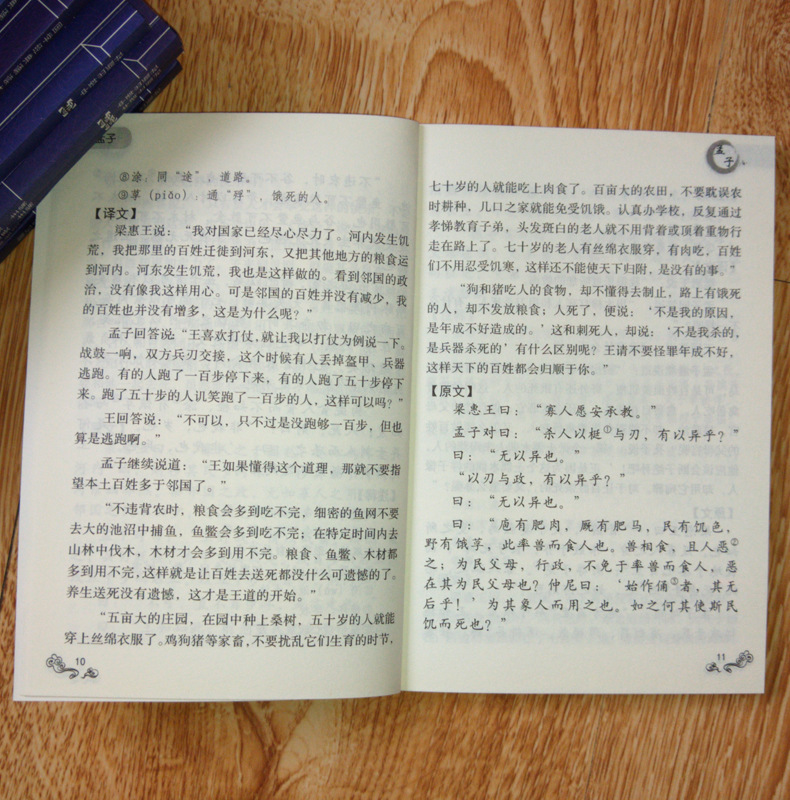 孟子
⑧涂：同“途”，道路。
⑨莩（piǎo）：通“殍”，饿死的人。
【译文】
梁惠王说：“我对国家已经尽心尽力了。河内发生饥
荒，我把那里的百姓迁徙到河东，又把其他地方的粮食运
到河内。河东发生饥荒，我也是这样做的。看到邻国的政
治，没有像我这样用心。可是邻国的百姓并没有减少，我
的百姓也并没有增多，这是为什么呢？”
孟子回答说：“王喜欢打仗，就让我以打仗为例说一下。
战鼓一响，双方兵刃交接，这个时候有人丢掉盔甲、兵器
逃跑。有的人跑了一百步停下来，有的人跑了五十步停下
来。跑了五十步的人讥笑跑了一百步的人，这样可以吗？”
王回答说：“不可以，只不过是没跑够一百步，但也
算是逃跑啊。”
孟子继续说道：“王如果懂得这个道理，那就不要指
望本土百姓多于邻国了。”
“不违背农时，粮食会多到吃不完，细密的鱼网不要
去大的池沼中捕鱼，鱼鳖会多到吃不完；在特定时间内去
山林中伐木，木材才会多到用不完。粮食、鱼鳖、木材都
多到用不完，这样就是让百姓去送死都没什么可遗憾的了。
养生送死没有遗憾，这才是王道的开始。”
“五亩大的庄园，在园中种上桑树，五十岁的人就能
穿上丝绵衣服了。鸡狗猪等家畜，不要扰乱它们生育的时节，
10
孟子
七十岁的人就能吃上肉食了。百亩大的农田，不要耽误农
时耕种，几口之家就能免受饥饿。认真办学校，反复通过
孝悌教育子弟，头发斑白的老人就不用背着或顶着重物行
走在路上了。七十岁的老人有丝绵衣服穿，有肉吃，百姓
们不用忍受饥寒，这样还不能使天下归附，是没有的事。”
“狗和猪吃人的食物，却不懂得去制止，路上有饿死
的人，却不发放粮食；人死了，便说：‘不是我的原因，
是年成不好造成的。’这和刺死人，却说：‘不是我杀的，
是兵器杀死的’有什么区别呢？王请不要怪罪年成不好，
这样天下的百姓都会归顺于你。”
【原文】
梁惠王曰：“寡人愿安承教。”
孟子对曰：“杀人以梃①与刃，有以异乎？”
曰：“无以异也。”
“以刃与政，有以异乎？”
曰：“无以异也。”
曰：“庖有肥肉，厩有肥马，民有饥色，
野有饿莩，此率兽而食人也。兽相食，且人恶②
之；为民父母，行政，不免于率兽而食人，恶
在其为民父母也？仲尼曰：‘始作俑③者，其无
后乎！’为其象人而用之也。如之何其使斯民
饥而死也？”
11